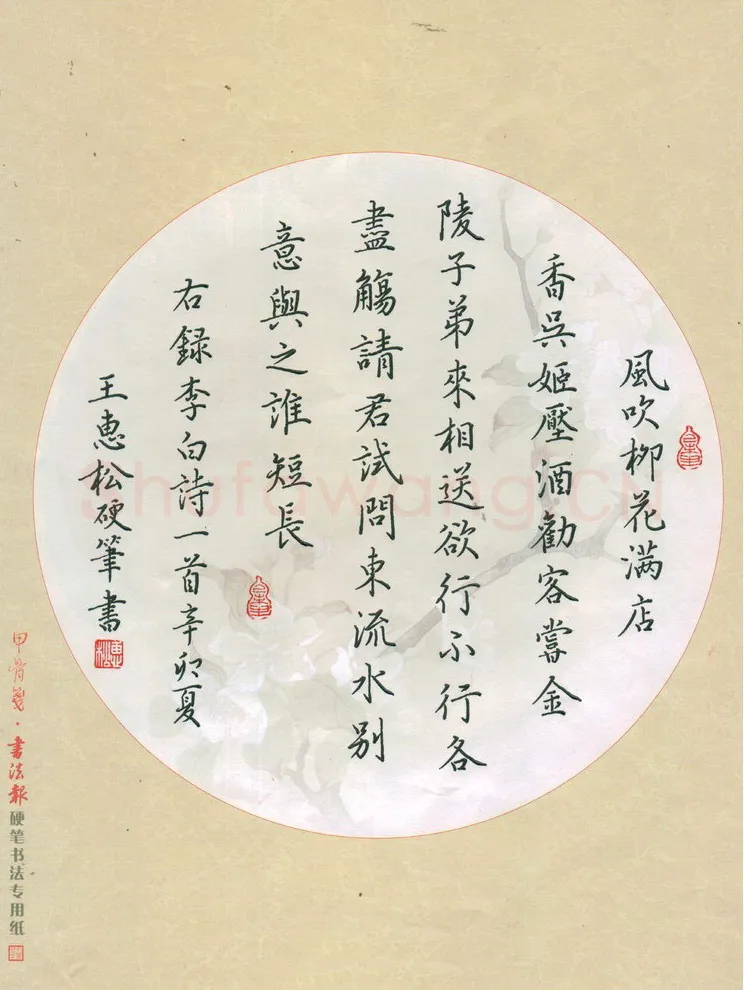 風吹柳花满店
香吳姬壓酒勸客嘗金
陵子弟來相送欲行不行各
盡觴請君試問東流水别
意與之誰短長
右録李白詩一首辛卯夏
王惠松硬筆書
甲骨箋·書法報硬笔书法专用纸
Shufawang.CN